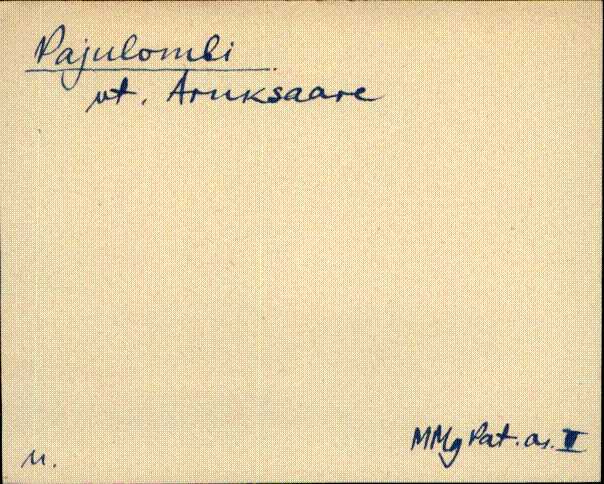 Pajulombi
vt. Aruksaare
MMg Pat. as. II
M.